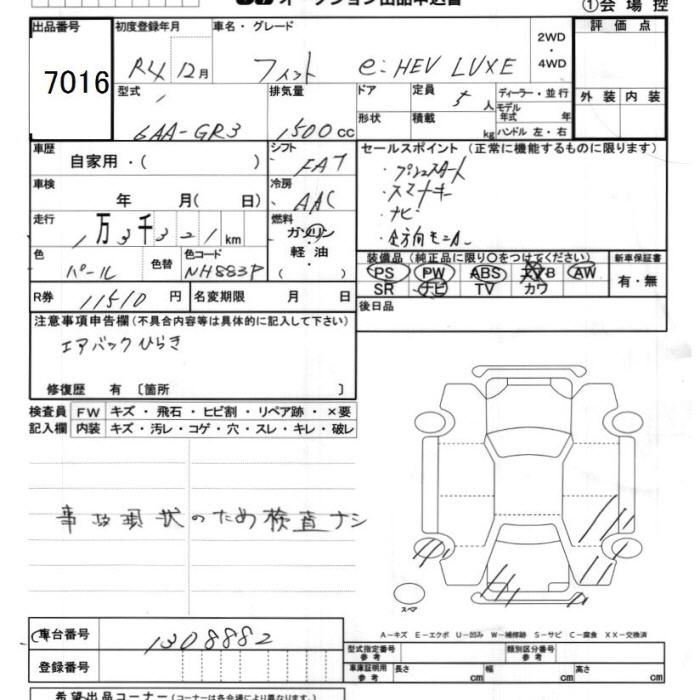 オークション出品申込書 ①会場控
出品番号 初度登録年月 車名・グレード 評価点
7016 R4 12月 フィット e:HEV LUXE 2WD・4WD
型式 排気量 ドア 定員 5人 ディーラー・並行 外装 内装
6AA-GR3 1500cc 形状 積載 kg モデル年式 年 ハンドル 左・右
車歴 シフト セールスポイント (正常に機能するものに限ります)
自家用・( ) FAT ・プッシュスタート
車検 冷房 ・スマートキー
年 月( 日) AAC ・ナビ
走行 燃料 ・全方向モニター
1万3千321km ガソリン
色 色替 色コード 軽油 装備品(純正品に限り○をつけてください) 新車保証書
パール NH883P ( ) PS PW ABS AW 有・無
SR ナビ TV カワ
R券 11510円 名変期限 月 日 後日品
注意事項申告欄(不具合内容等は具体的に記入して下さい)
エアバックひらき
修復歴 有 〔箇所 〕
検査員 FW キズ・飛石・ヒビ割・リペア跡・×要
記入欄 内装 キズ・汚レ・コゲ・穴・スレ・キレ・破レ
事故現状のため検査ナシ
スペア
A−キズ E−エクボ U−凹み W−補修跡 S−サビ C−腐食 XX−交換済
車台番号 1308882
型式指定番号 参考 類別区分番号 参考
登録番号 車庫証明用 参考 長さ cm 幅 cm 高さ cm
希望出品コーナー(コーナーは各会場により異なります)